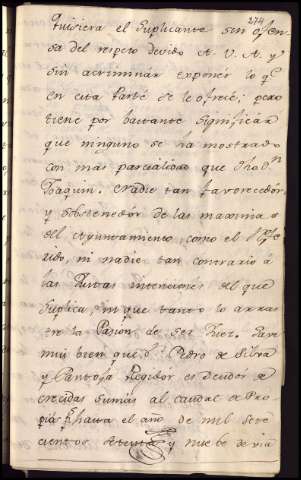 274
Quisiera el Suplicante sin ofen-
sa del respeto devido A V. A. y
sin acriminar exponer lo q.e
en esta Parte se le ofrece; pero
tiene por bastante significar
que ninguno se ha mostrado
con mas parcialidad que dho d.n
Joaquin. Nadie tan favorecedor,
y sobstenedor de las maximas
del Ayuntamiento, como el
rido, ni nadie tan contrario á
las Juntas intenciones del que
Suplica, in que tanto lo arras
tre la Pasion de ser Juez. Save
mui bien que d.n Pedro de Silva
y Pantoja Regidor es Deudor de
crecidas sumas al caudal de Pro
pios hasta el año de mil sete
cientos setenta y nuebe de via